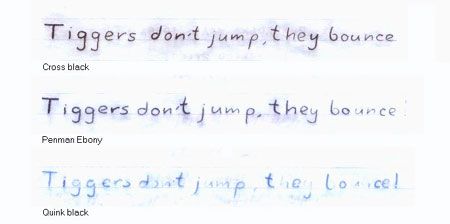 Tiggers don't jump, they bounce
Cross black
Tiggers don't jump, they bounce
Penman Ebony
Tiggers don't jump, they bounce!
Quink black